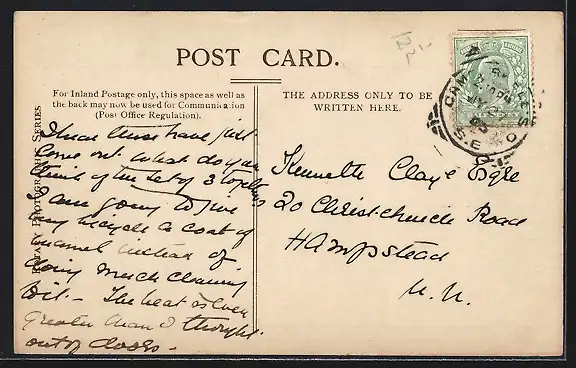 POST CARD.
For Inland Postage only, this space as well as
the back may now be used for Communication
(Post Office Regulation).
THE ADDRESS ONLY TO BE
WRITTEN HERE.
ROTARY PHOTOGRAPHIC SERIES
I hear these have just
come out. What do you
think of the set of 3 together
I am going to give
my bicycle a coat of
enamel instead of
doing much cleaning
bit. - The heat is even
greater than I thought
out of doors -
Kenneth Claye Esqre
20 Christchurch Road
Hampstead
N.W.
S.E.